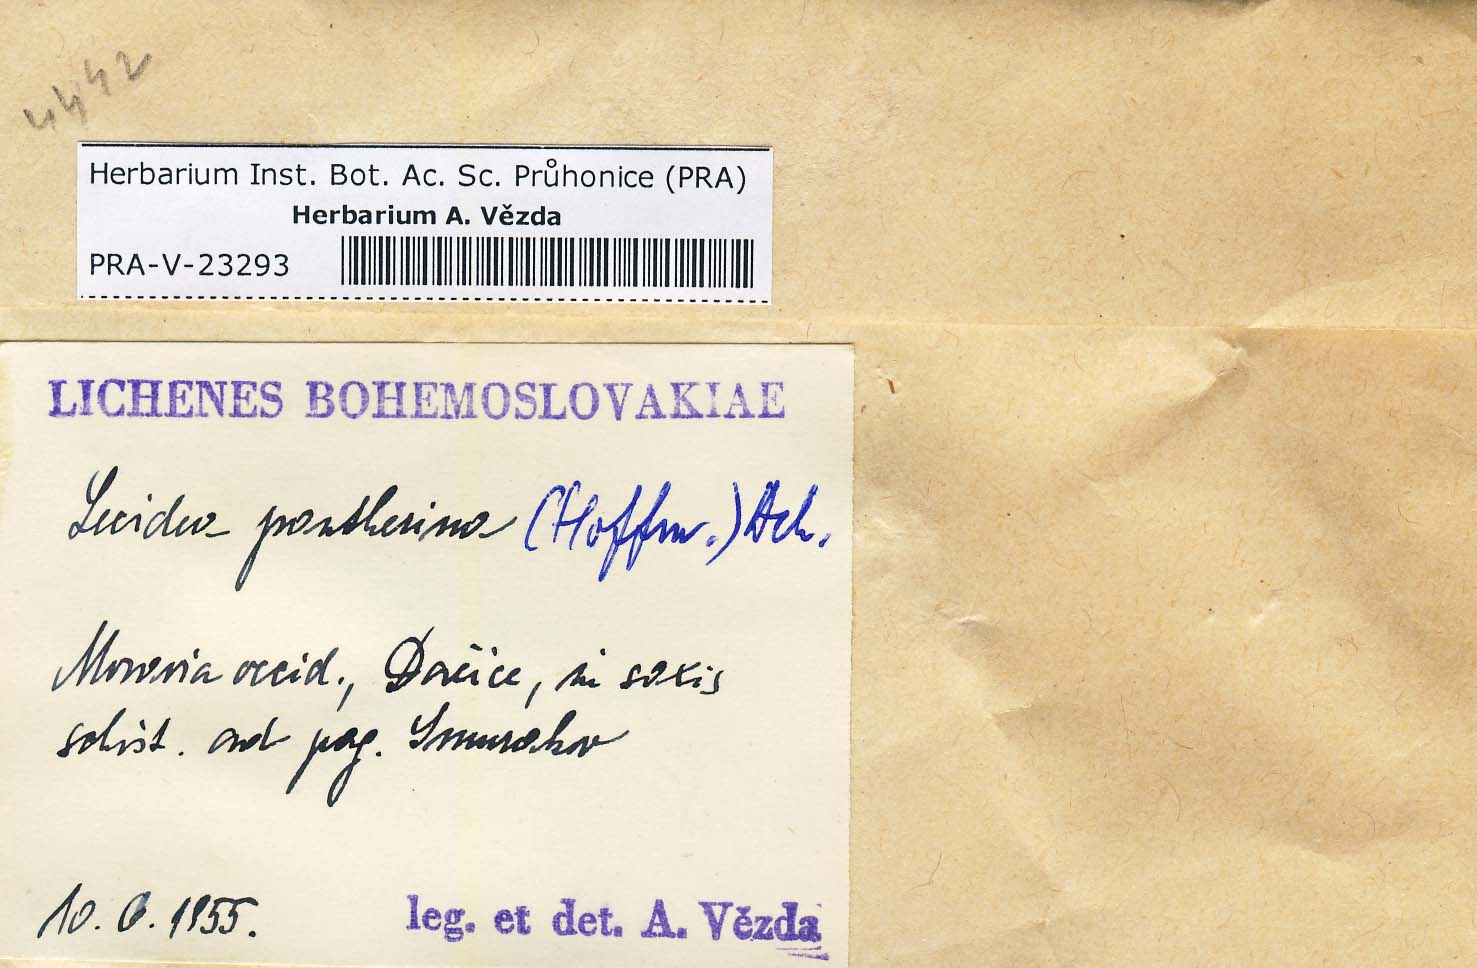 4442
Herbarium Inst. Bot. Ac. Sc. Průhonice (PRA)
Herbarium A. Vězda
PRA-V-23293
LICHENES BOHEMOSLOVAKIAE
Lecidea pantherina (Hoffm.) Ach.
Moravia occid., Dačice, in saxis
schist. ad pag.
10. 6. 1955.
leg. et det. A. Vězda